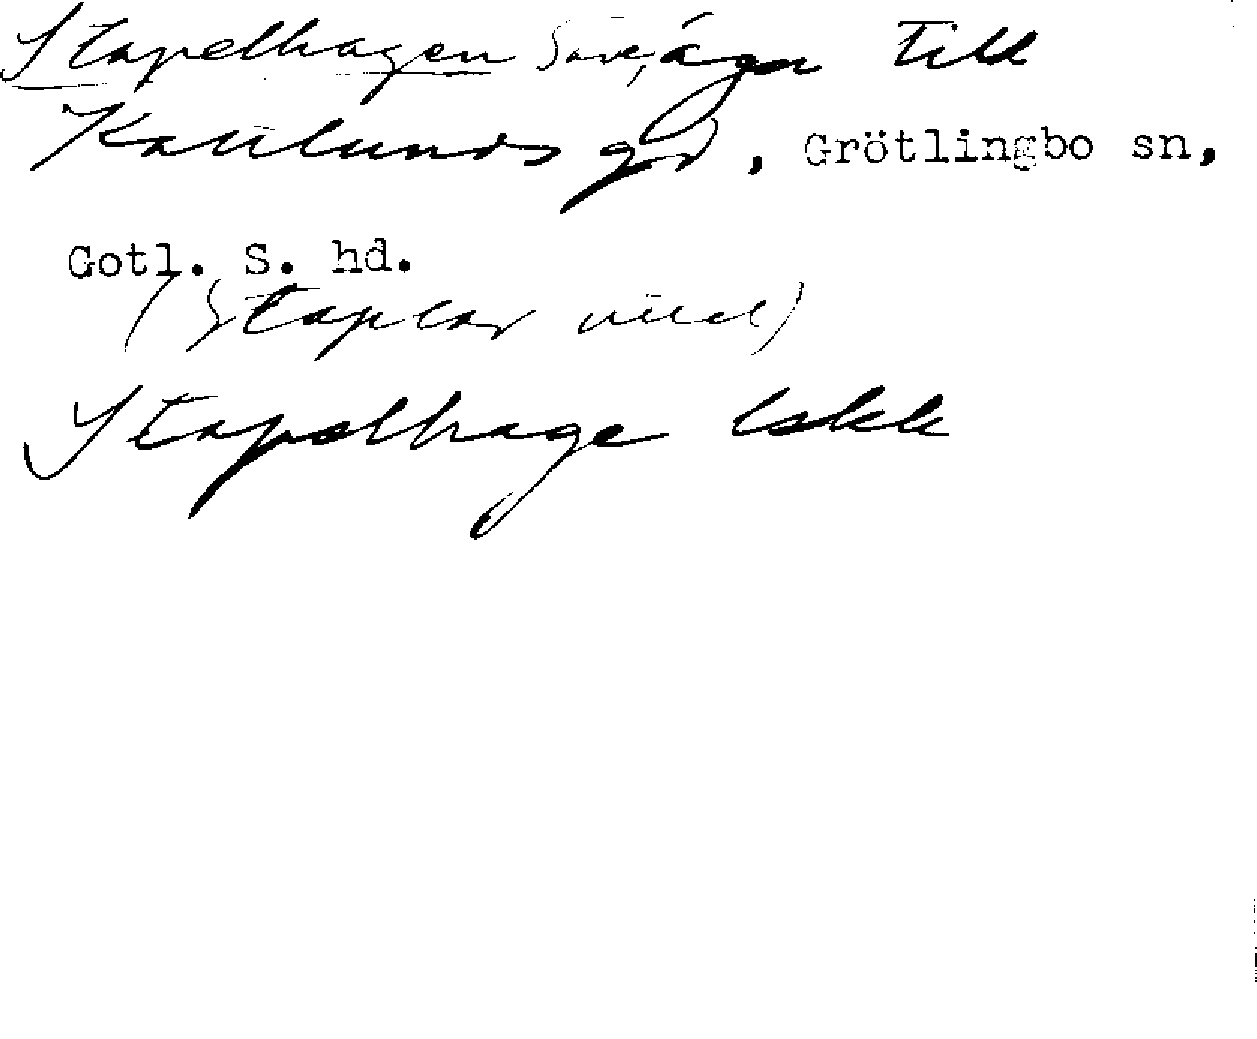 Stapelhagen Save, äga till
Kattlunds gd, Grötlingbo sn,
Gotl. S. hd.
(Staplar med)
Stapelhage